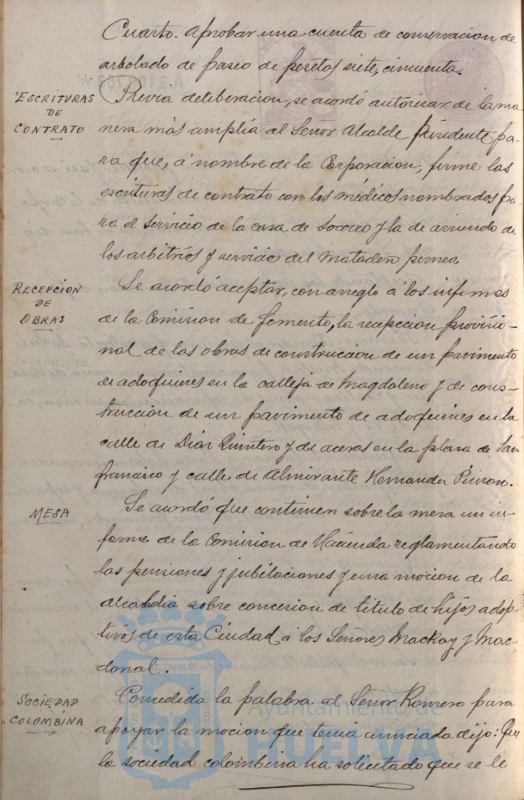 Cuarto. Aprobar una cuenta de conservacion de
arbolado de paseo de pesetas siete, cincuenta.
ESCRITURAS
DE
CONTRATO
Previa deliberacion, se acordó autorizar de la ma
nera más amplia al Señor Alcalde Presidente pa
ra que, á nombre de la Corporacion, firme las
escrituras de contrato con los médicos nombrados pa
ra el servicio de la casa de socorro y la de arriendo de
los arbitrios y servicio del matadero
RECEPCION
DE
OBRAS
Se acordó aceptar, con arreglo á los informes
de la Comision de fomento, la recepcion provisio
nal de las obras de construccion de un pavimento
de adoquines en la calleja de Magdaleno y de cons-
truccion de un pavimento de adoquines en la
calle de Diaz Quintero y de aceras en la plaza de San
francisco y calle de Almirante Hernandez Pinzon.
MESA
Se acordó que continúen sobre la mesa un in
forme de la Comision de Hacienda reglamentando
las pensiones y jubilaciones y una mocion de la
alcaldia sobre concesion de titulo de hijos adop
tivos de esta Ciudad á los Señores Mackay y Mac
donal.
SOCIEDAD
COLOMBINA
Concedida la palabra al Señor Romero para
apoyar la mocion que tenia anunciada dijo: Que
la sociedad colombina ha solicitado que se le
Ayuntamiento de
HUELVA